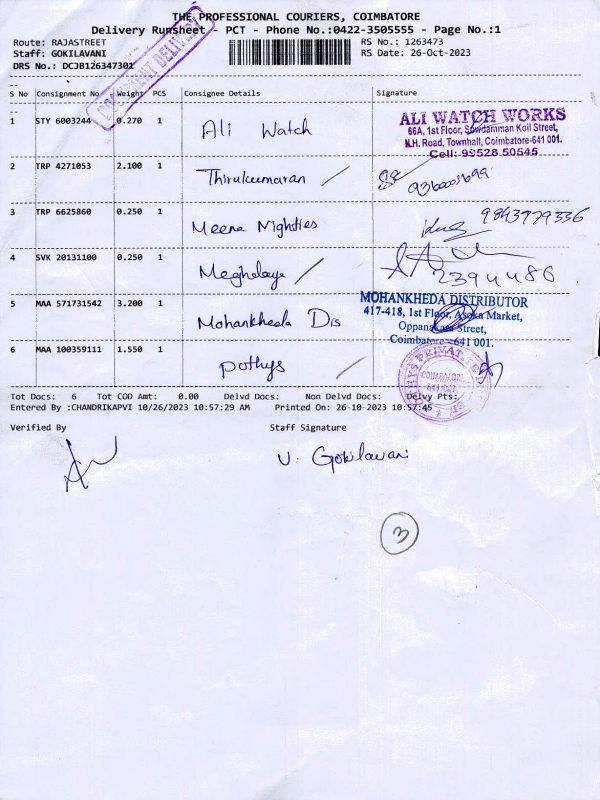 THE PROFESSIONAL COURIERS, COIMBATORE
Delivery Runsheet - PCT - Phone No.:0422-3505555 - Page No.:1
Route: RAJASTREET RS No.: 1263473
Staff: GOKILAVANI RS Date: 26-Oct-2023
DRS No.: DCJB126347301
DOCUMENT DELIVERY
S No Consignment No. Weight PCS Consignee Details Signature
1 STY 6003244 0.270 1 Ali Watch
ALI WATCH WORKS
66A, 1st Floor, Sowdamman Koil Street,
N.H. Road, Townhall, Coimbatore-641 001.
Cell: 99528 50545
2 TRP 4271053 2.100 1 Thirukumaran
3 TRP 6625860 0.250 1 Meena Nighties 9843779336
4 SVK 20131100 0.250 1 Meghalaya 2394486
5 MAA 571731542 3.200 1 Mohankheda Dis
MOHANKHEDA DISTRIBUTOR
417-418, 1st Floor, Asoka Market,
Oppanakara Street,
Coimbatore-641 001.
6 MAA 100359111 1.550 1 Pothys
COIMBATORE
641 001
Tot Docs: 6 Tot COD Amt: 0.00 Delvd Docs: Non Delvd Docs: Delvy Pts:
Entered By :CHANDRIKAPVI 10/26/2023 10:57:29 AM Printed On: 26-10-2023 10:57:45
Verified By Staff Signature
V. Gokilavani
3